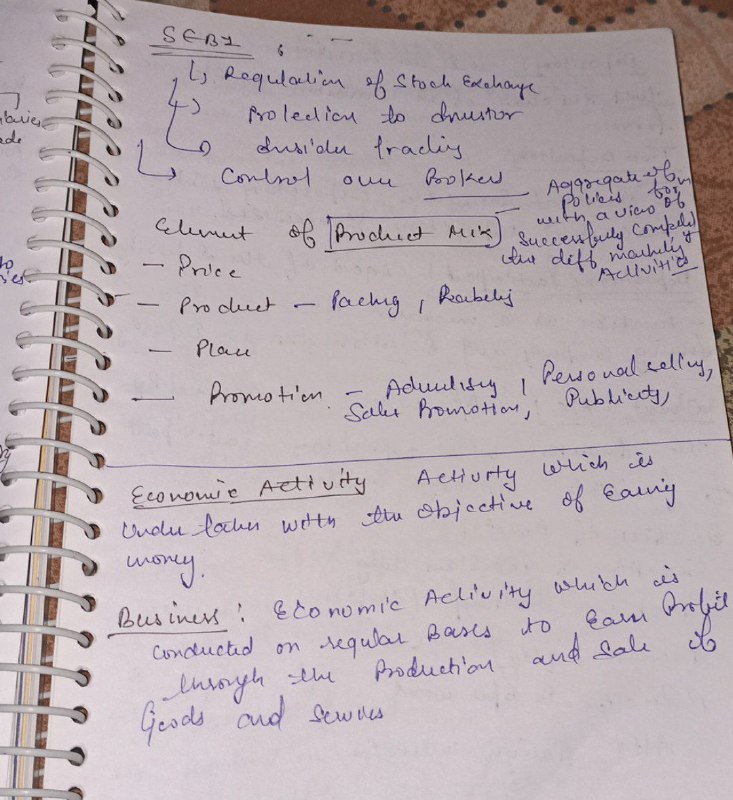 SEBI
Regulation of Stock Exchange
Protection to Investor
Insider trading
Control over Brokers
Aggregate of
Policies for
with a view of
Successfully
the diff
Activities
Element of Product Mix
- Price
- Product - Packing, Labeling
- Place
- Promotion - Advertising, Personal selling,
Sales Promotion, Publicity,
Economic Activity Activity which is
Under taken with the Objective of Earning
money.
Business: Economic Activity which is
conducted on regular Bases to Earn Profit
through the Production and Sale of
Goods and Services